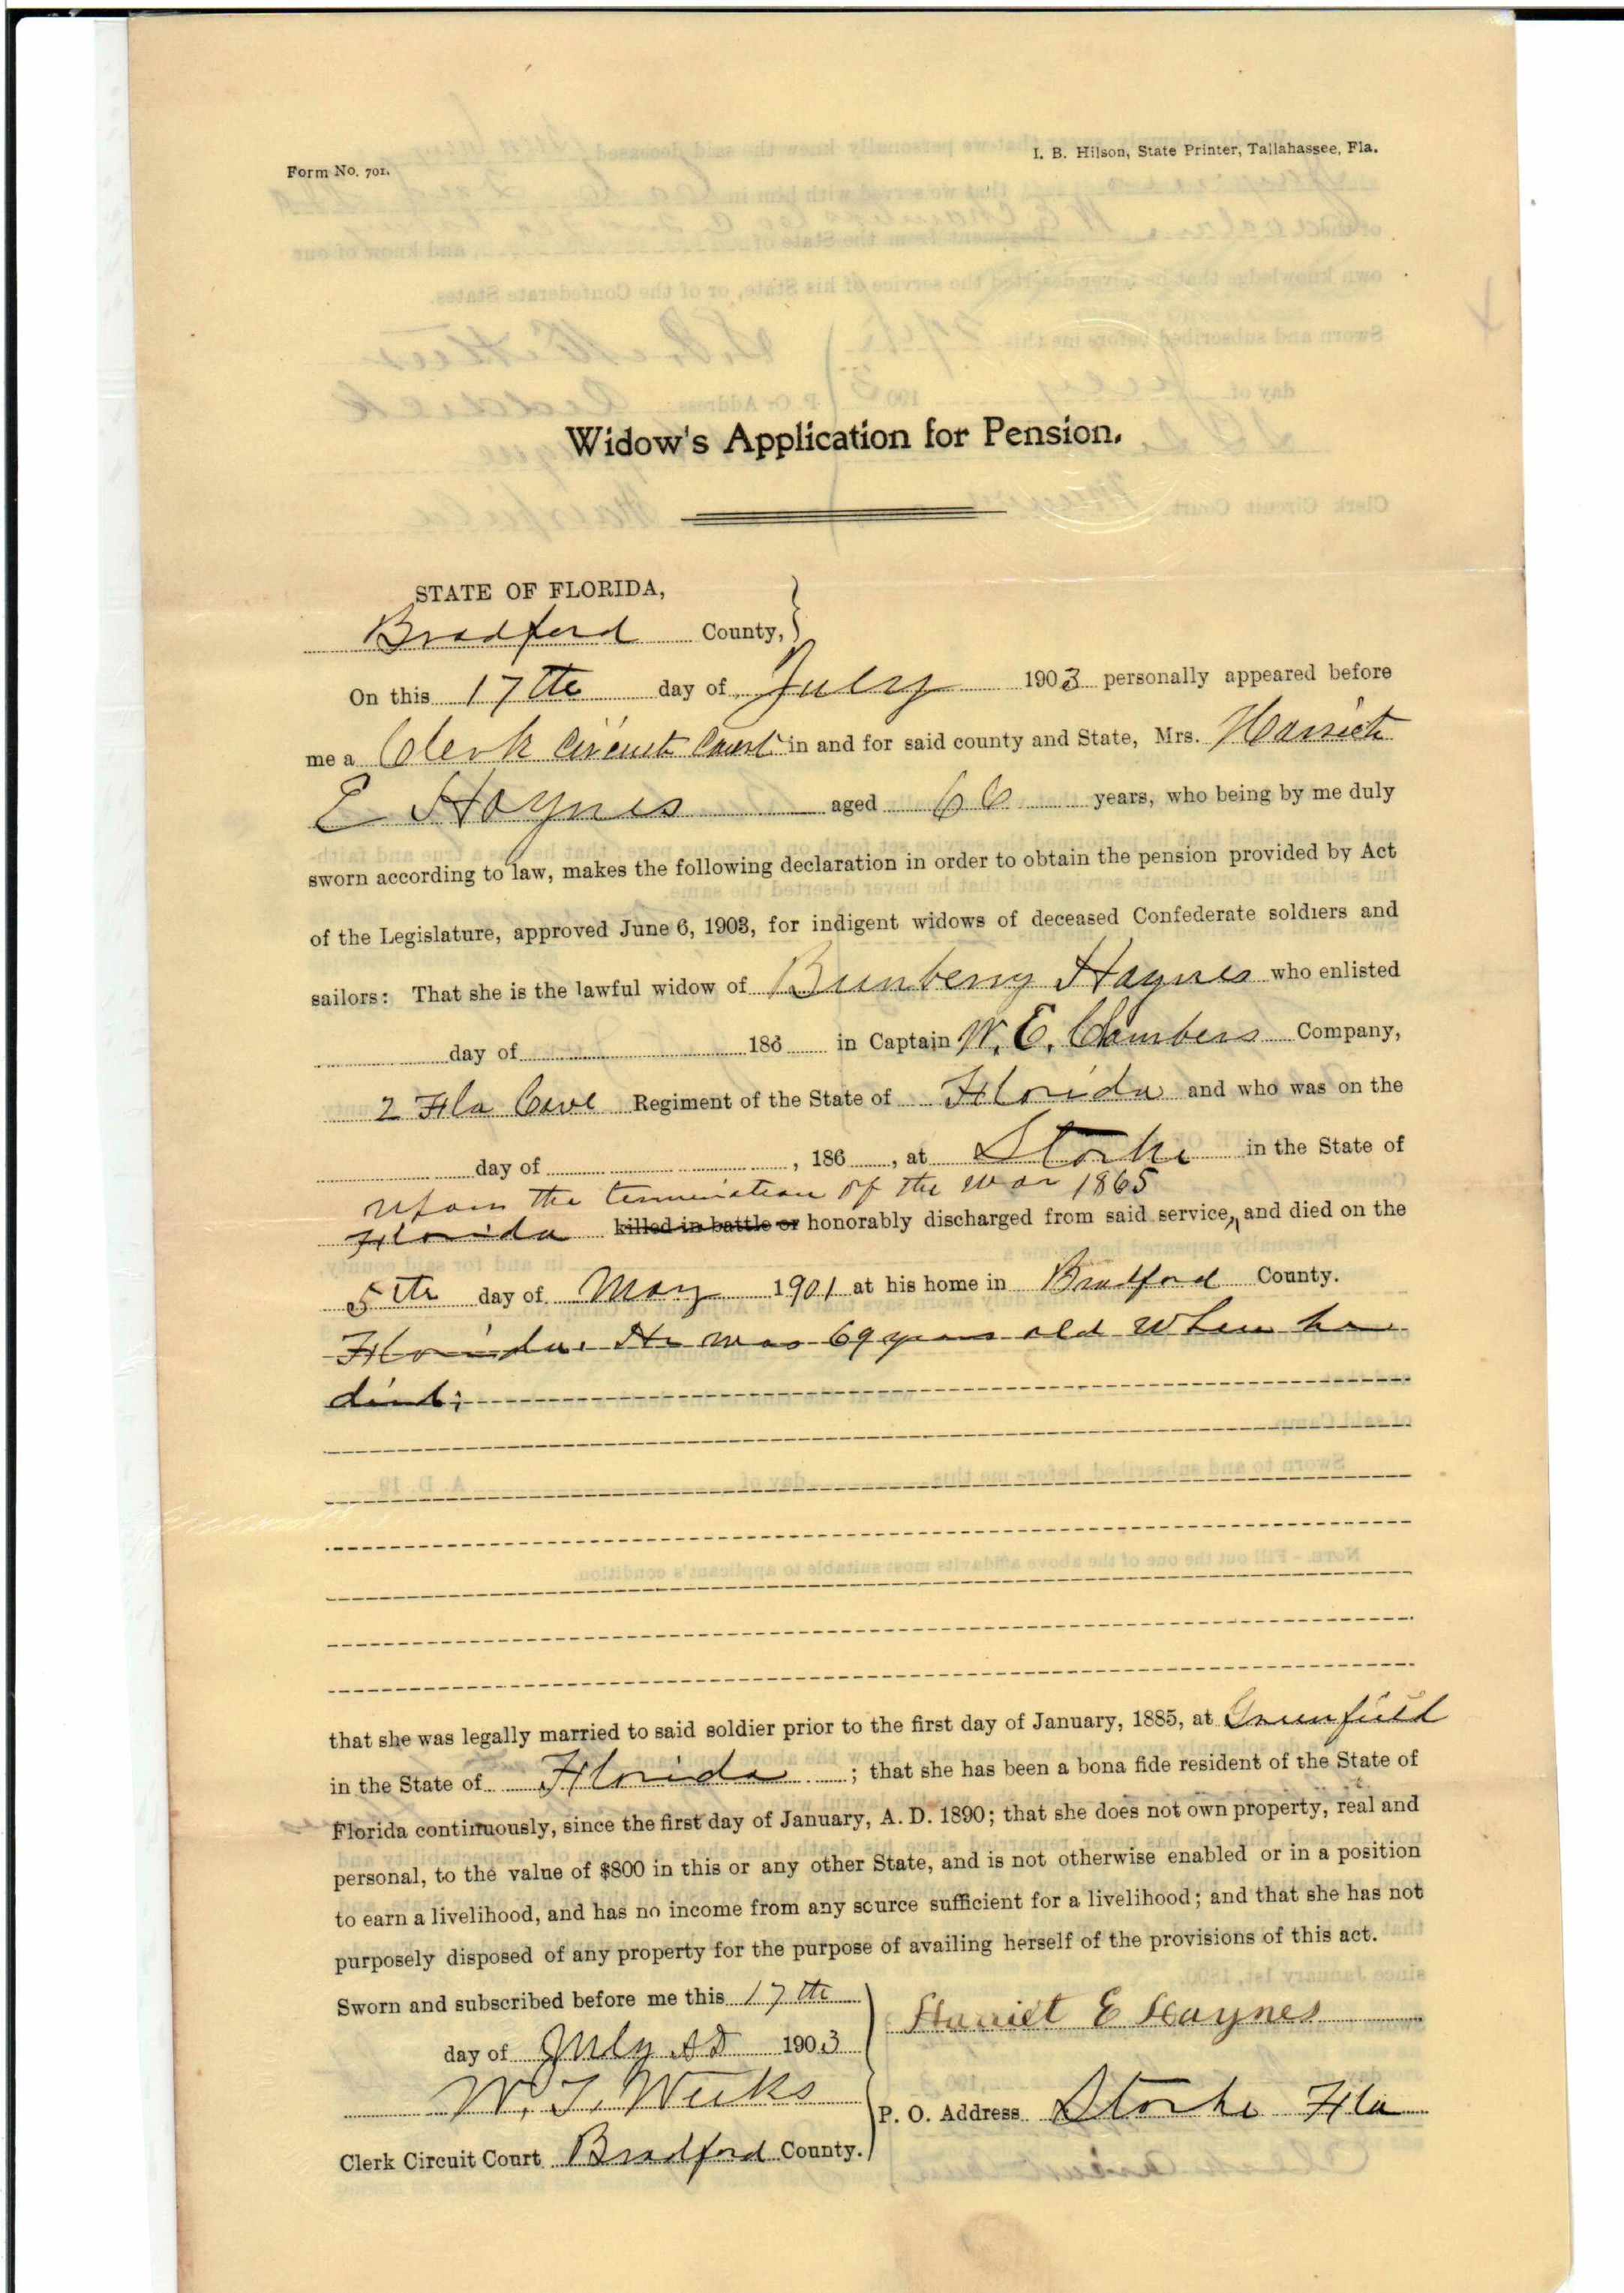 Form No. 701.
I. B. Hilson, State Printer, Tallahassee, Fla.
Widow's Application for Pension.
STATE OF FLORIDA,
Bradford County,
On this 17th day of July 1903 personally appeared before
me a Clerk Circuit Court in and for said county and State, Mrs. Harriet
E Haynes aged 66 years, who being by me duly
sworn according to law, makes the following declaration in order to obtain the pension provided by Act
of the Legislature, approved June 6, 1903, for indigent widows of deceased Confederate soldiers and
sailors: That she is the lawful widow of Bunberry Haynes who enlisted
day of 186 in Captain W. E. Chambers Company,
2 Fla Cavl Regiment of the State of Florida and who was on the
day of , 186 , at Starke in the State of
upon the termination of the war 1865
Florida killed in battle or honorably discharged from said service, and died on the
5th day of May 1901 at his home in Bradford County.
Florida. He was 69 years old when he
died;
that she was legally married to said soldier prior to the first day of January, 1885, at Greenfield
in the State of Florida ; that she has been a bona fide resident of the State of
Florida continuously, since the first day of January, A. D. 1890; that she does not own property, real and
personal, to the value of $800 in this or any other State, and is not otherwise enabled or in a position
to earn a livelihood, and has no income from any source sufficient for a livelihood; and that she has not
purposely disposed of any property for the purpose of availing herself of the provisions of this act.
Sworn and subscribed before me this 17th
day of July AD 1903
Harriet E Haynes
W. T. Weeks
P. O. Address Starke Fla
Clerk Circuit Court Bradford County.